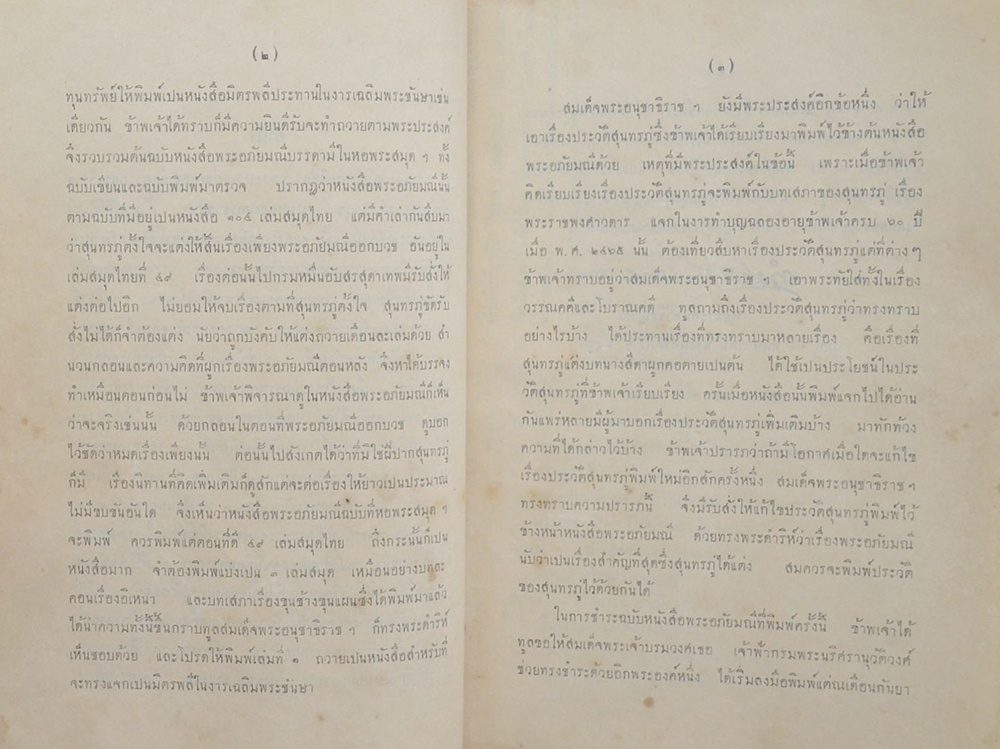 (๒)
ทุนทรัพย์ให้พิมพ์เปนหนังสือมิตรพลีประทานในงารเฉลิมพระชันษาเช่น
เดียวกัน ข้าพเจ้าได้ทราบก็มีความยินดีรับจะทำถวายตามพระประสงค์
จึงรวบรวมต้นฉบับหนังสือพระอภัยมณีบรรดามีในหอพระสมุด ฯ ทั้ง
ฉบับเขียนและฉบับพิมพ์มาตรวจ ปรากฏว่าหนังสือพระอภัยมณีนั้น
ตามฉบับที่มีอยู่เปนหนังสือ ๑๐๔ เล่มสมุดไทย แต่มีคำเล่ากันสืบมา
ว่าสุนทรภู่ตั้งใจจะแต่งให้สิ้นเรื่องเพียงพระอภัยมณีออกบวช อันอยู่ใน
เล่มสมุดไทยที่ ๔๙ เรื่องต่อนั้นไปกรมหมื่นอัปสรสุดาเทพมีรับสั่งให้
แต่งต่อไปอิก ไม่ยอมให้จบเรื่องตามที่สุนทรภู่ตั้งใจ สุนทรภู่ขัดรับ
สั่งไม่ได้ก็จำต้องแต่ง นัยว่าถูกบังคับให้แต่งถวายเดือนละเล่มด้วย สำ
นวนกลอนและความคิดที่ผูกเรื่องพระอภัยมณีตอนหลัง จึงหาได้บรรจง
ทำเหมือนตอนก่อนไม่ ข้าพเจ้าพิจารณาดูในหนังสือพระอภัยมณีก็เห็น
ว่าจะจริงเช่นนั้น ด้วยกลอนในตอนที่พระอภัยมณีออกบวช ดูบอก
ไว้ชัดว่าหมดเรื่องเพียงนั้น ต่อนั้นไปสังเกตได้ว่าที่มิใช่ฝีปากสุนทรภู่
ก็มี เรื่องนิทานที่คิดเพิ่มเติมก็ดูสักแต่จะต่อเรื่องให้ยาวเปนประมาณ
ไม่มีขบขันอันใด จึงเห็นว่าหนังสือพระอภัยมณีฉบับที่หอพระสมุด ฯ
จะพิมพ์ ควรพิมพ์แต่ตอนที่ดี ๔๙ เล่มสมุดไทย ถึงกระนั้นก็เปน
หนังสือมาก จำต้องพิมพ์แบ่งเปน ๓ เล่มสมุด เหมือนอย่างบทละ
คอนเรื่องอิเหนา และบทเสภาเรื่องขุนช้างขุนแผนซึ่งได้พิมพ์มาแล้ว
ได้นำความทั้งนี้ขึ้นกราบทูลสมเด็จพระอนุชาธิราช ฯ ก็ทรงพระดำริห์
เห็นชอบด้วย และโปรดให้พิมพ์เล่มที่ ๑ ถวายเปนหนังสือสำหรับที่
จะทรงแจกเปนมิตรพลีในงารเฉลิมพระชันษา
(๓)
สมเด็จพระอนุชาธิราช ฯ ยังมีพระประสงค์อิกข้อหนึ่ง ว่าให้
เอาเรื่องประวัติสุนทรภู่ซึ่งข้าพเจ้าได้เรียบเรียงมาพิมพ์ไว้ข้างต้นหนังสือ
พระอภัยมณีด้วย เหตุที่มีพระประสงค์ในข้อนี้ เพราะเมื่อข้าพเจ้า
คิดเรียบเรียงเรื่องประวัติสุนทรภู่จะพิมพ์กับบทเสภาของสุนทรภู่ เรื่อง
พระราชพงศาวดาร แจกในงารทำบุญฉลองอายุข้าพเจ้าครบ ๖๐ ปี
เมื่อ พ.ศ. ๒๔๖๕ นั้น ต้องเที่ยวสืบหาเรื่องประวัติสุนทรภู่แต่ที่ต่างๆ
ข้าพเจ้าทราบอยู่ว่าสมเด็จพระอนุชาธิราช ฯ เอาพระทัยใส่ทั้งในเรื่อง
วรรณคดีและโบราณคดี ทูลถามถึงเรื่องประวัติสุนทรภู่ว่าทรงทราบ
อย่างไรบ้าง ได้ประทานเรื่องที่ทรงทราบมาหลายเรื่อง คือเรื่องที่
สุนทรภู่แต่งบทนางสีดาผูกคอตายเปนต้น ได้ใช้เปนประโยชน์ในประ
วัติสุนทรภู่ที่ข้าพเจ้าเรียบเรียง ครั้นเมื่อหนังสือนั้นพิมพ์แจกไปได้อ่าน
กันแพร่หลายมีผู้มาบอกเรื่องประวัติสุนทรภู่เพิ่มเติมบ้าง มาทักท้วง
ความที่ได้กล่าวไว้บ้าง ข้าพเจ้าปรารภว่าถ้ามีโอกาศเมื่อใดจะแก้ไข
เรื่องประวัติสุนทรภู่พิมพ์ใหม่อิกสักครั้งหนึ่ง สมเด็จพระอนุชาธิราช ฯ
ทรงทราบความปรารภนี้ จึงมีรับสั่งให้แก้ไขประวัติสุนทรภู่พิมพ์ไว้
ข้างหน้าหนังสือพระอภัยมณี ด้วยทรงพระดำริห์ว่าเรื่องพระอภัยมณี
นับว่าเปนเรื่องสำคัญที่สุดซึ่งสุนทรภู่ได้แต่ง สมควรจะพิมพ์ประวัติ
ของสุนทรภู่ไว้ด้วยกันได้
ในการชำระฉบับหนังสือพระอภัยมณีที่พิมพ์ครั้งนี้ ข้าพเจ้าได้
ทูลขอให้สมเด็จพระเจ้าบรมวงศ์เธอ เจ้าฟ้ากรมพระนริศรานุวัดติวงศ์
ช่วยทรงชำระด้วยอิกพระองค์หนึ่ง ได้เริ่มลงมือพิมพ์แต่ณเดือนกันยา